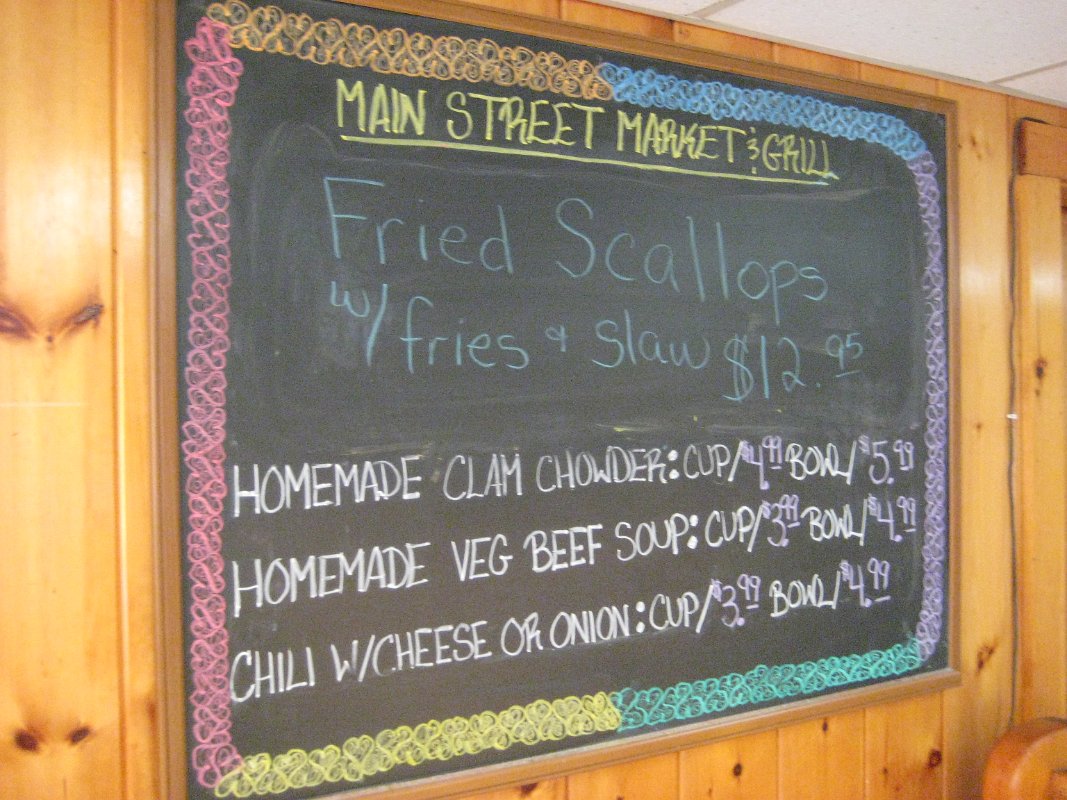 MAIN STREET MARKET & GRILL
Fried Scallops
w/ fries & slaw $12.95
HOMEMADE CLAM CHOWDER: CUP/$4.99 BOWL/$5.99
HOMEMADE VEG BEEF SOUP: CUP/$3.99 BOWL/$4.99
CHILI W/CHEESE OR ONION: CUP/$3.99 BOWL/$4.99